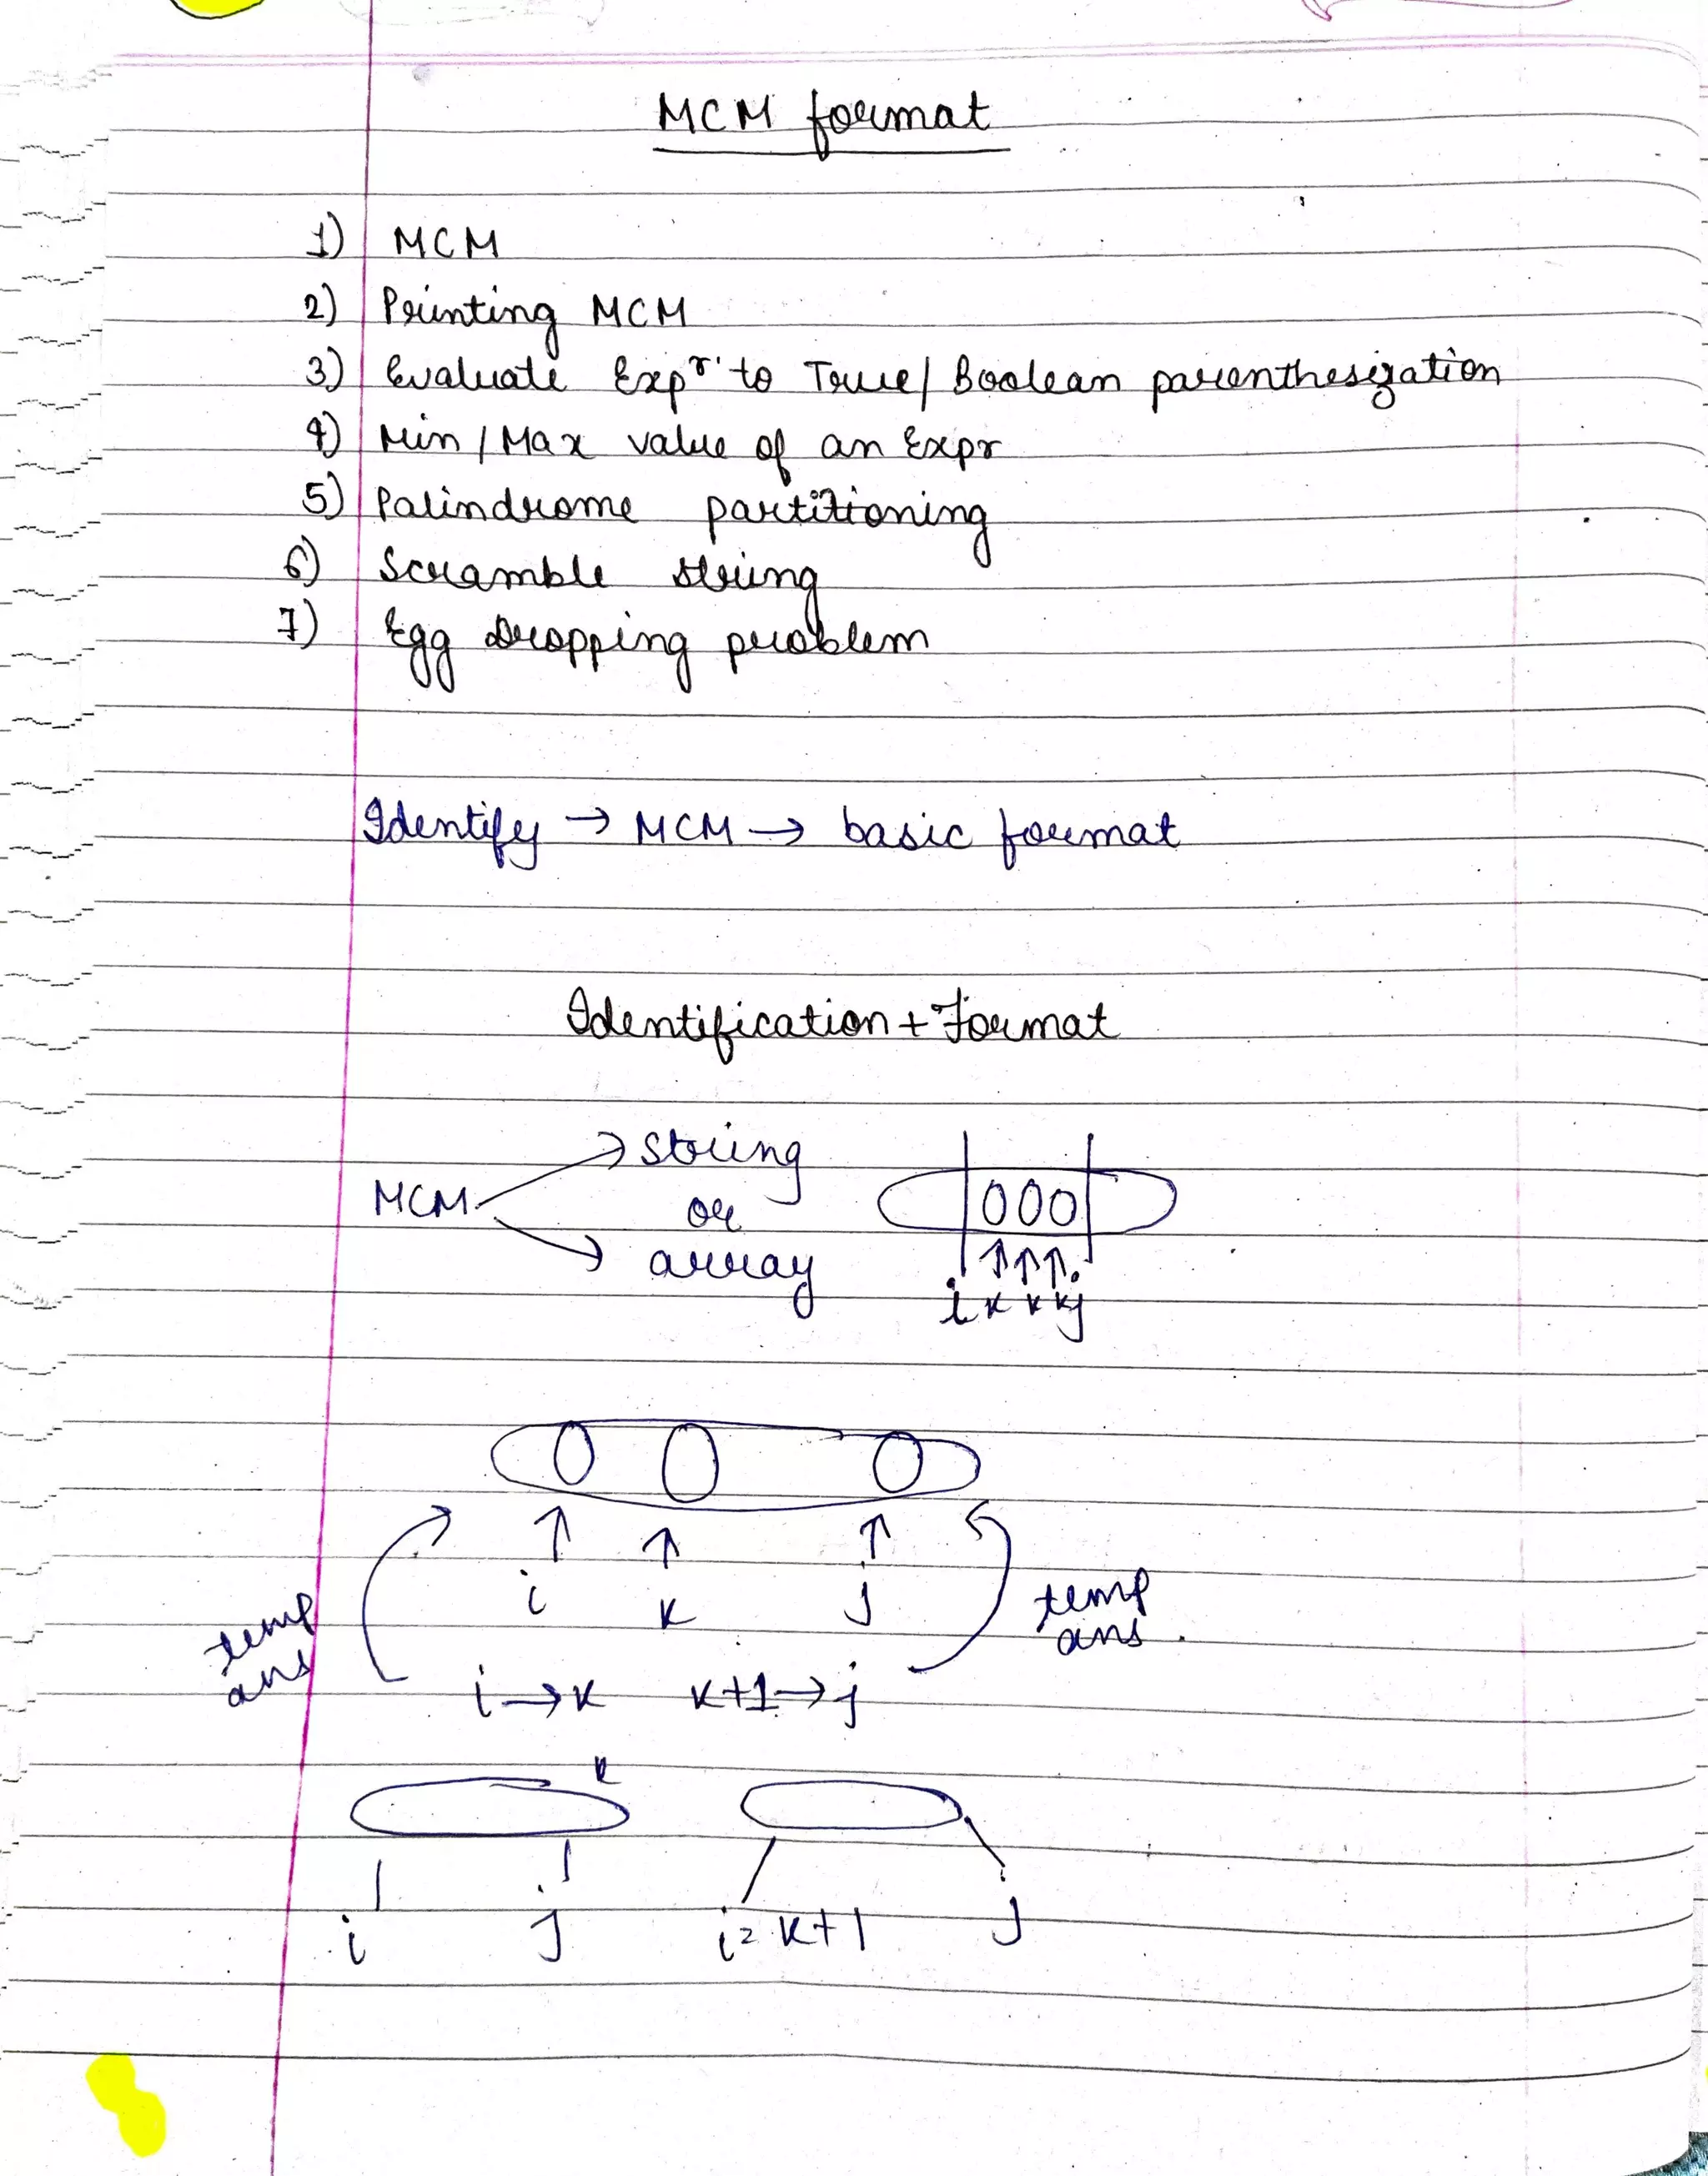 MCM format
1) MCM
2) Printing MCM
3) Evaluate Expr. to True/ Boolean parenthesization
4) Min / Max value of an Expr
5) Palindrome partitioning
6) Scramble string
7) Egg Dropping problem
Identify → MCM → basic format
Identification + Format
MCM → string
or
→ array
i k k k j
i k j
temp ans
temp ans
i → k k+1 → j
k
i j i = k+1 j